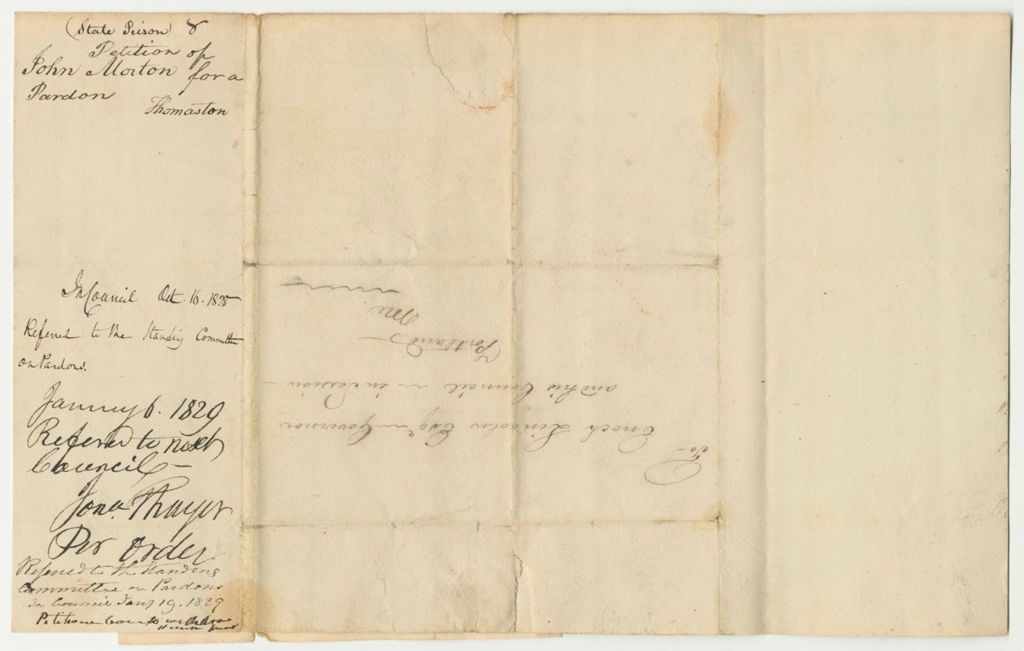 (State Prison) &
Petition of
John Morton for a
Pardon
Thomaston
In Council Oct. 16. 1828
Referred to the Standing Committee
on Pardons.
January 6. 1829
Refered to next
Council —
Jona. Thayer
Per Order
Refered to the Standing
Committee on Pardons
In Council Jany 19. 1829
Petitioner
To —
Enoch Lincoln Esqr Governor
and his Council in session
Portland
Me